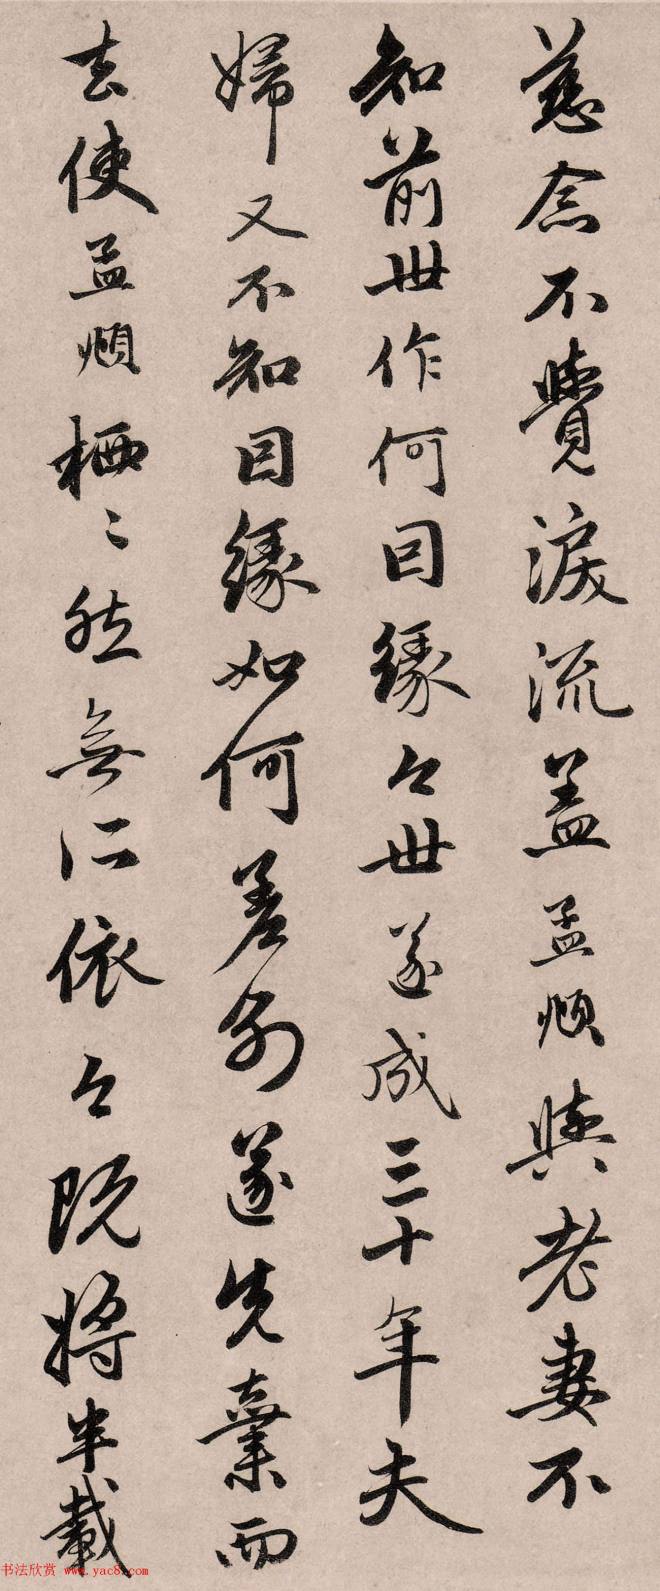 慈念不覺淚流蓋孟頫與老妻不
知前世作何因緣今世遂成三十年夫
婦又不知因緣如何差別遂先棄而
去使孟頫栖〻然無所依今既將半載
书法欣赏 www.yac8.com